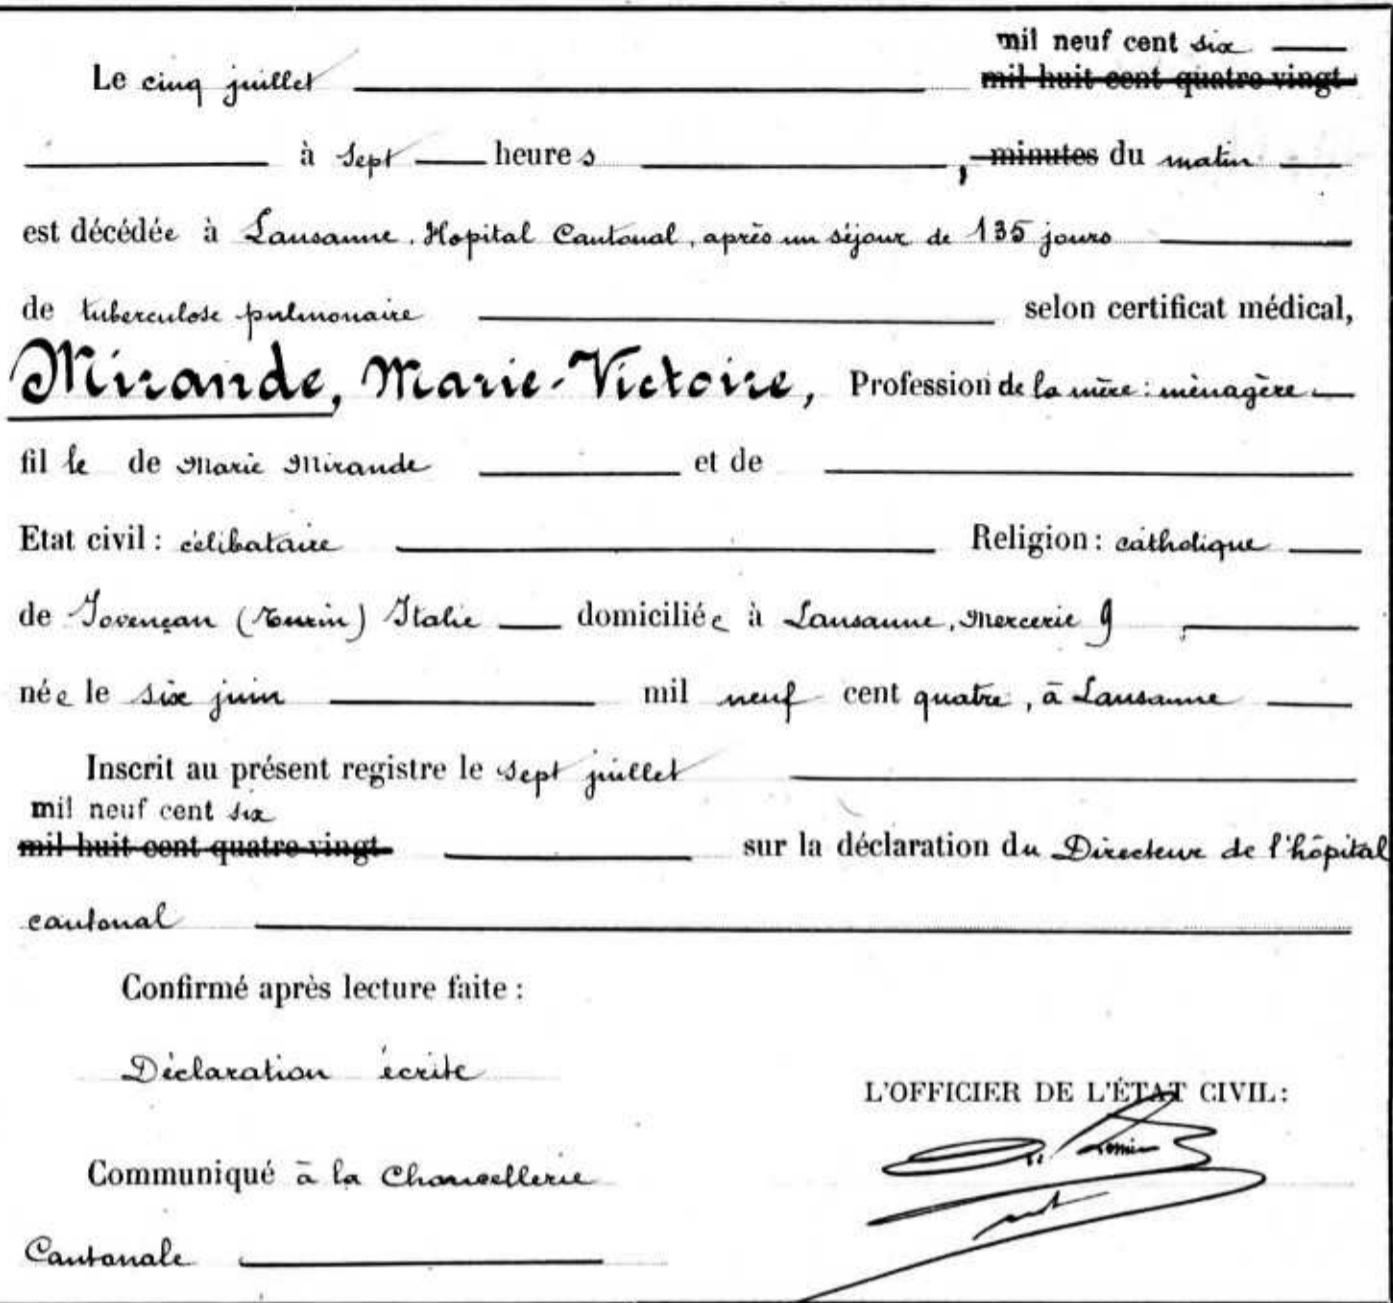 mil neuf cent six
Le cinq juillet mil huit cent quatre vingt
à sept heures, minutes du matin
est décédée à Lausanne, Hopital Cantonal, après un séjour de 135 jours
de tuberculose pulmonaire selon certificat médical,
Mirande, Marie-Victoire, Profession de la mère : ménagère
fille de Marie Mirande et de
Etat civil : célibataire Religion : catholique
de Jovençan (Turin) Italie domiciliée à Lausanne, Mercerie 9
née le six juin mil neuf cent quatre, à Lausanne
Inscrit au présent registre le sept juillet
mil neuf cent six
mil huit cent quatre vingt sur la déclaration du Directeur de l'hôpital
cantonal
Confirmé après lecture faite :
Déclaration écrite
L'OFFICIER DE L'ÉTAT CIVIL :
Communiqué à la Chancellerie
Cantonale